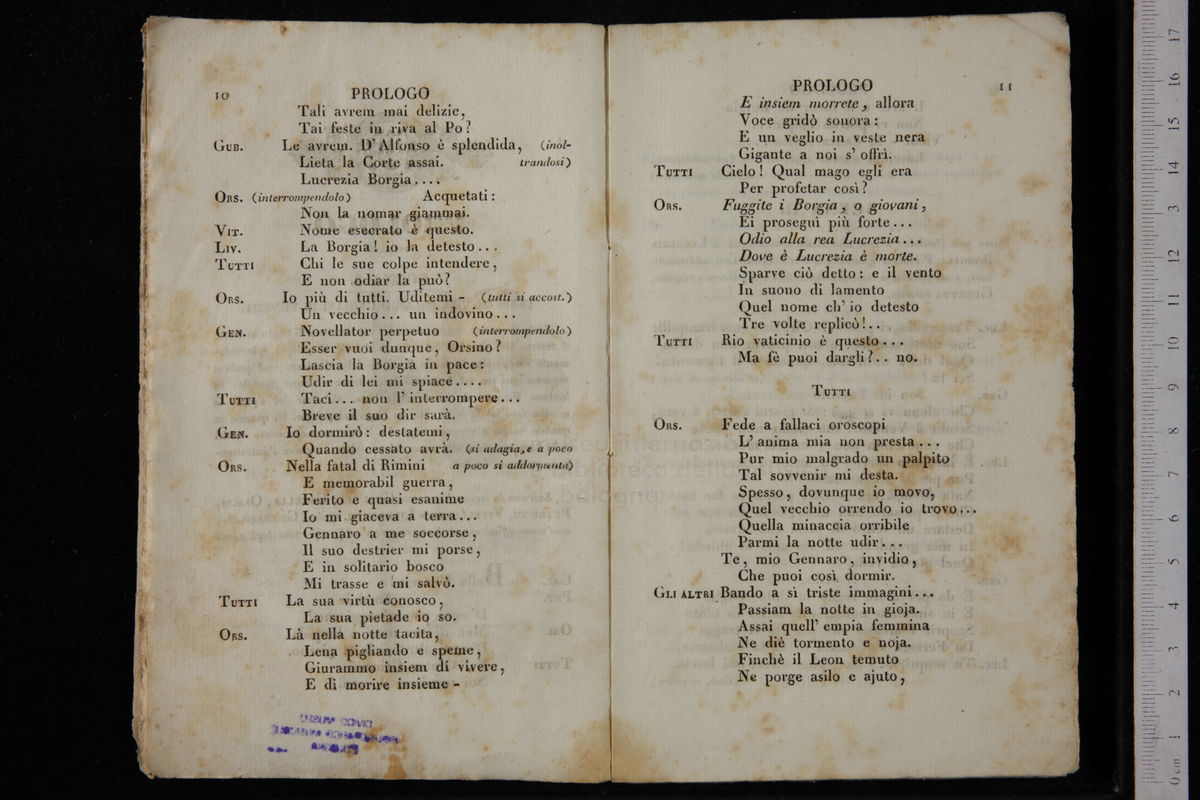 10 PROLOGO
Tali avrem mai delizie,
Tai feste in riva al Po?
GUB. Le avrem. D'Alfonso è splendida, (inol-
Lieta la Corte assai. trandosi)
Lucrezia Borgia....
ORS. (interrompendolo) Acquetati:
Non la nomar giammai.
VIT. Nome esecrato è questo.
LIV. La Borgia! io la detesto...
TUTTI Chi le sue colpe intendere,
E non odiar la può?
ORS. Io più di tutti. Uditemi - (tutti si accost.)
Un vecchio... un indovino...
GEN. Novellator perpetuo (interrompendolo)
Esser vuoi dunque, Orsino?
Lascia la Borgia in pace:
Udir di lei mi spiace....
TUTTI Taci... non l'interrompere...
Breve il suo dir sarà.
GEN. Io dormirò: destatemi,
Quando cessato avrà. (si adagia, e a poco
ORS. Nella fatal di Rimini a poco si addormenta)
E memorabil guerra,
Ferito e quasi esanime
Io mi giaceva a terra...
Gennaro a me soccorse,
Il suo destrier mi porse,
E in solitario bosco
Mi trasse e mi salvò.
TUTTI La sua virtù conosco,
La sua pietade io so.
ORS. Là nella notte tacita,
Lena pigliando e speme,
Giurammo insiem di vivere,
E di morire insieme -
PROLOGO 11
E insiem morrete, allora
Voce gridò sonora:
E un veglio in veste nera
Gigante a noi s'offrì.
TUTTI Cielo! Qual mago egli era
Per profetar così?
ORS. Fuggite i Borgia, o giovani,
Ei proseguì più forte...
Odio alla rea Lucrezia...
Dove è Lucrezia è morte.
Sparve ciò detto: e il vento
In suono di lamento
Quel nome ch'io detesto
Tre volte replicò!..
TUTTI Rio vaticinio è questo...
Ma fè puoi dargli?.. no.
TUTTI
ORS. Fede a fallaci oroscopi
L'anima mia non presta...
Pur mio malgrado un palpito
Tal sovvenir mi desta.
Spesso, dovunque io movo,
Quel vecchio orrendo io trovo...
Quella minaccia orribile
Parmi la notte udir...
Te, mio Gennaro, invidio,
Che puoi così dormir.
GLI ALTRI Bando a sì triste immagini...
Passiam la notte in gioja.
Assai quell'empia femmina
Ne diè tormento e noja.
Finchè il Leon temuto
Ne porge asilo e ajuto,